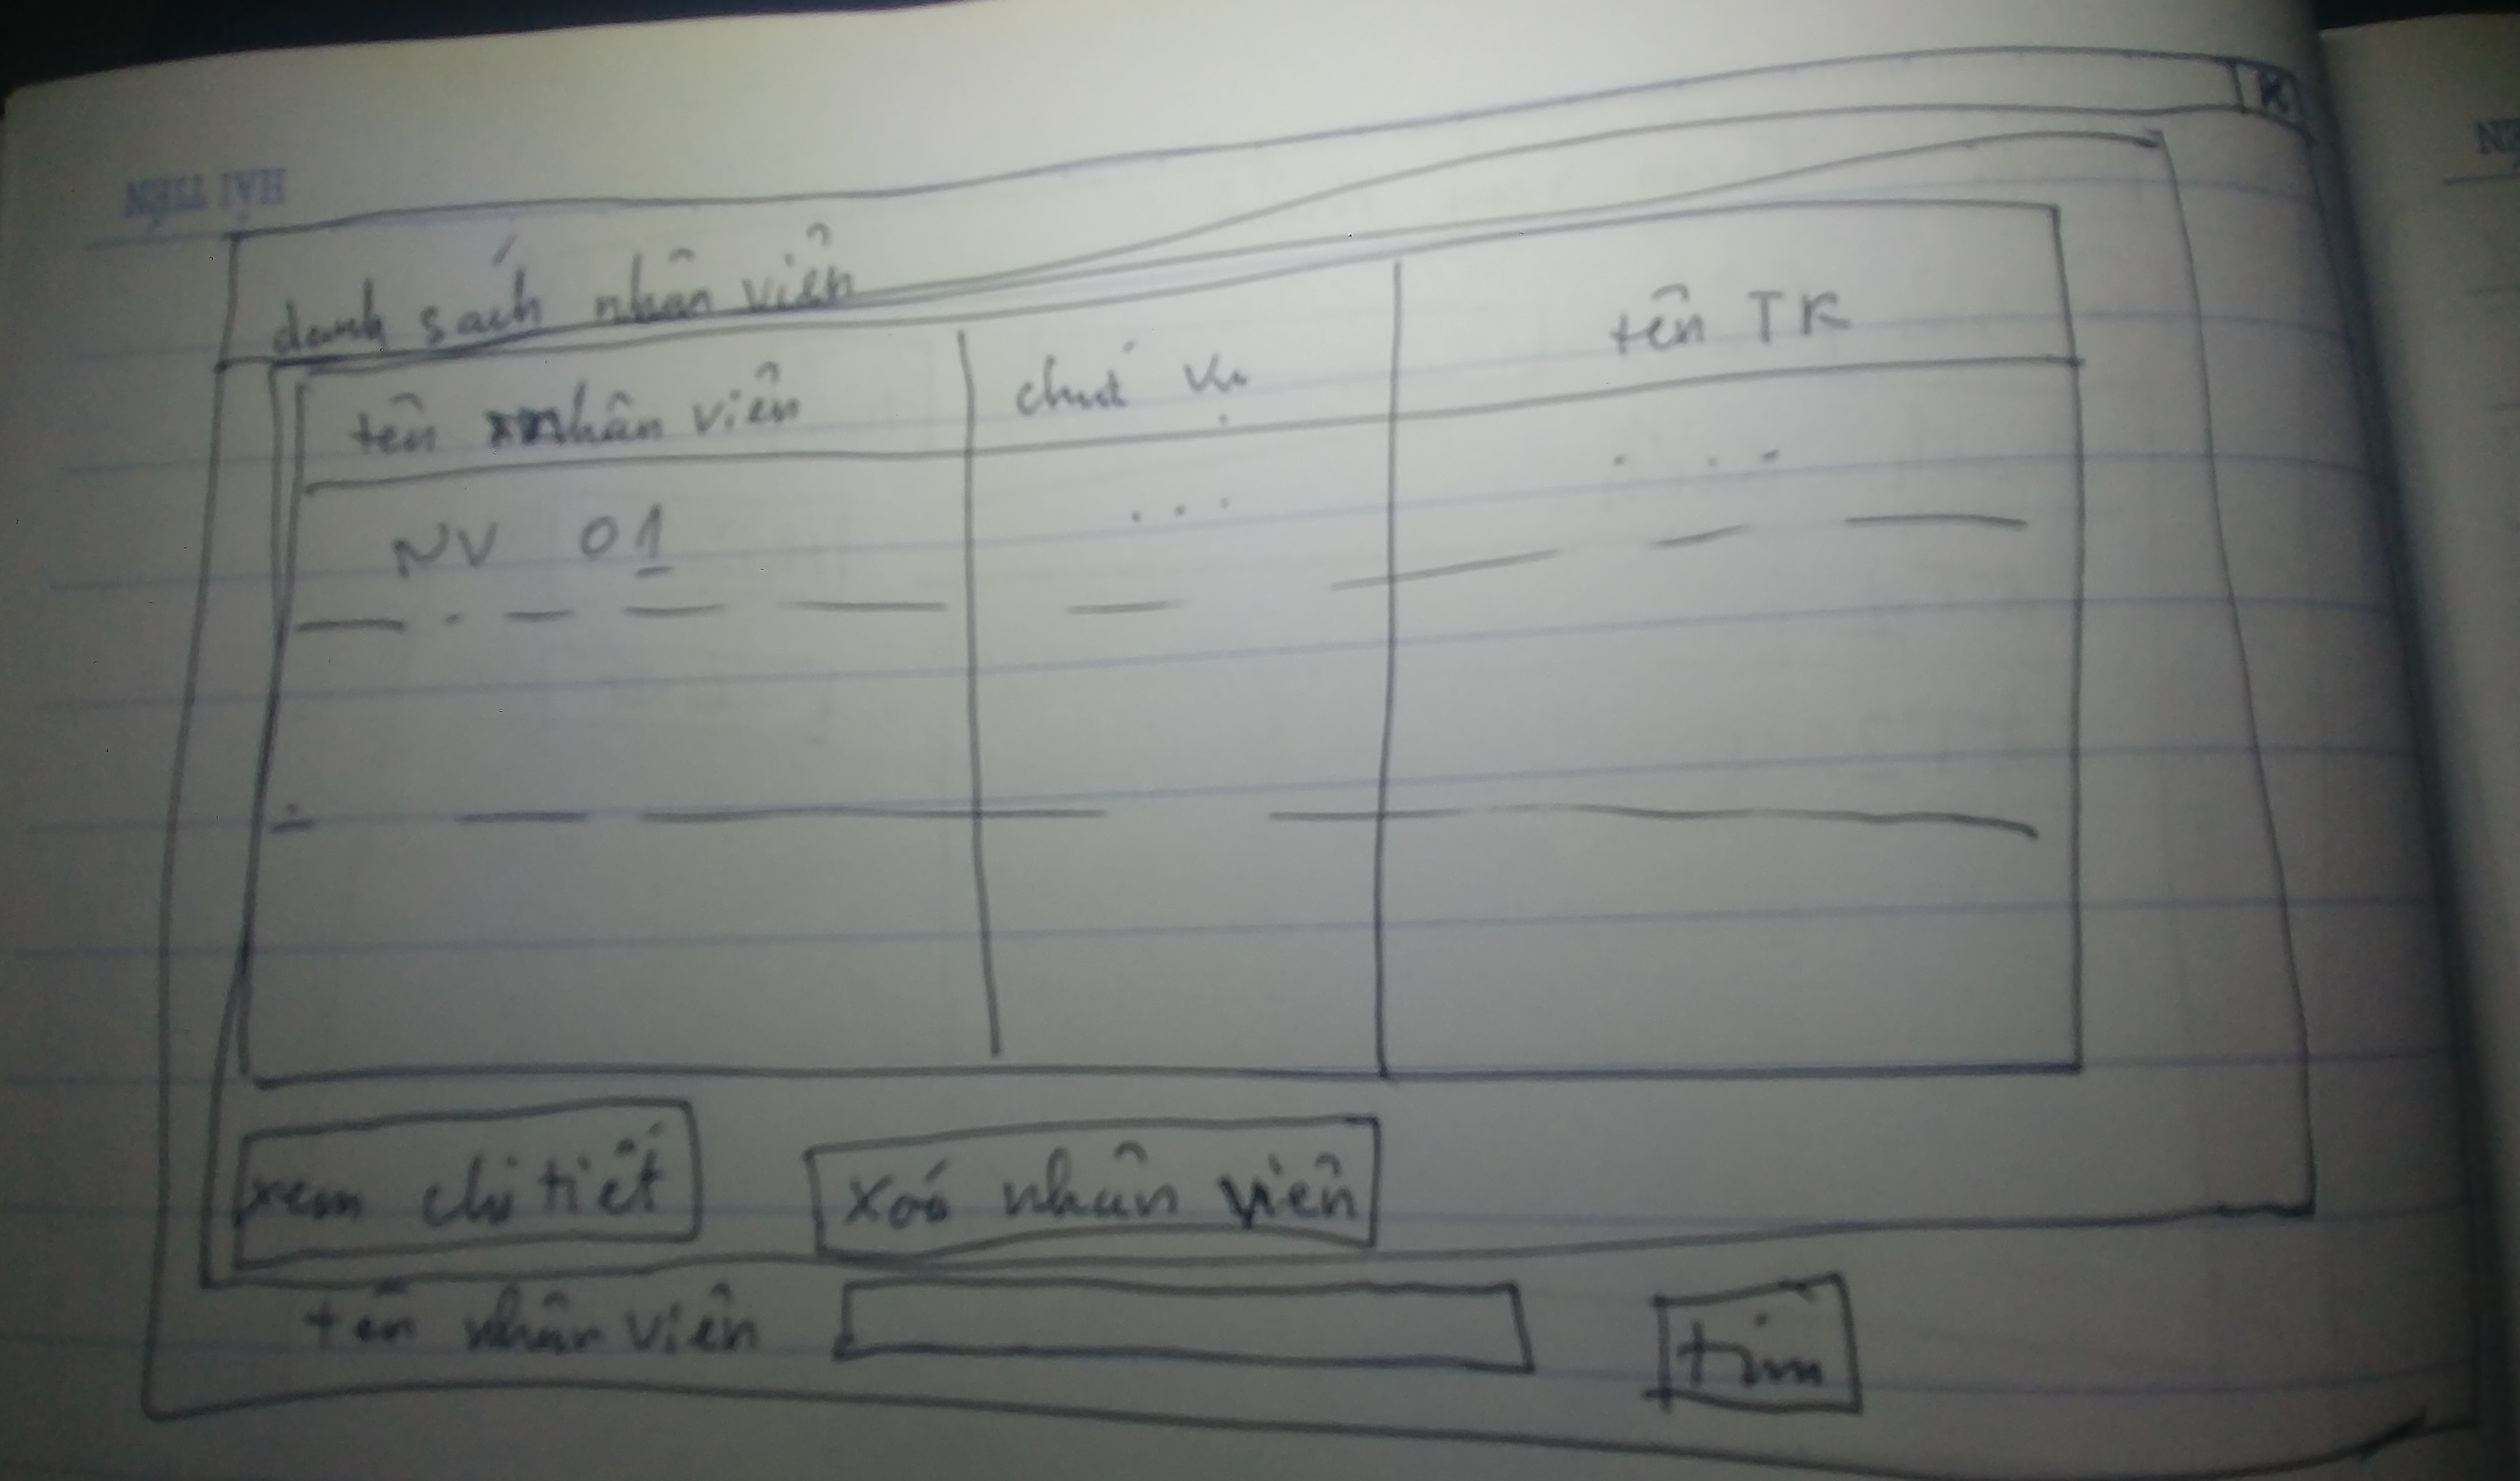 HẢI TIẾN
danh sách nhân viên
tên nhân viên chức vụ tên TK
NV 01 ... ...
xem chi tiết xoá nhân viên
tên nhân viên tìm